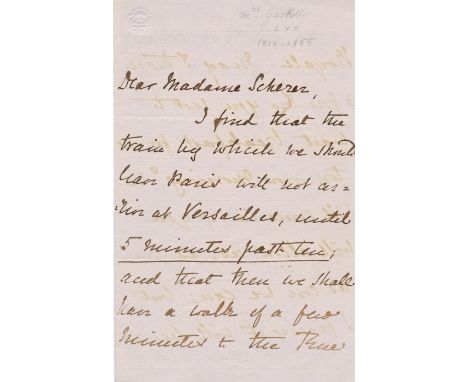 Mrs Gaskell
1810-1865
Dear Madame Scherer,
I find that the
train by which we should
leave Paris will not ar=
rive at Versailles, until
5 minutes past ten;
and that then we shall
have a walk of a few
minutes to the Rue